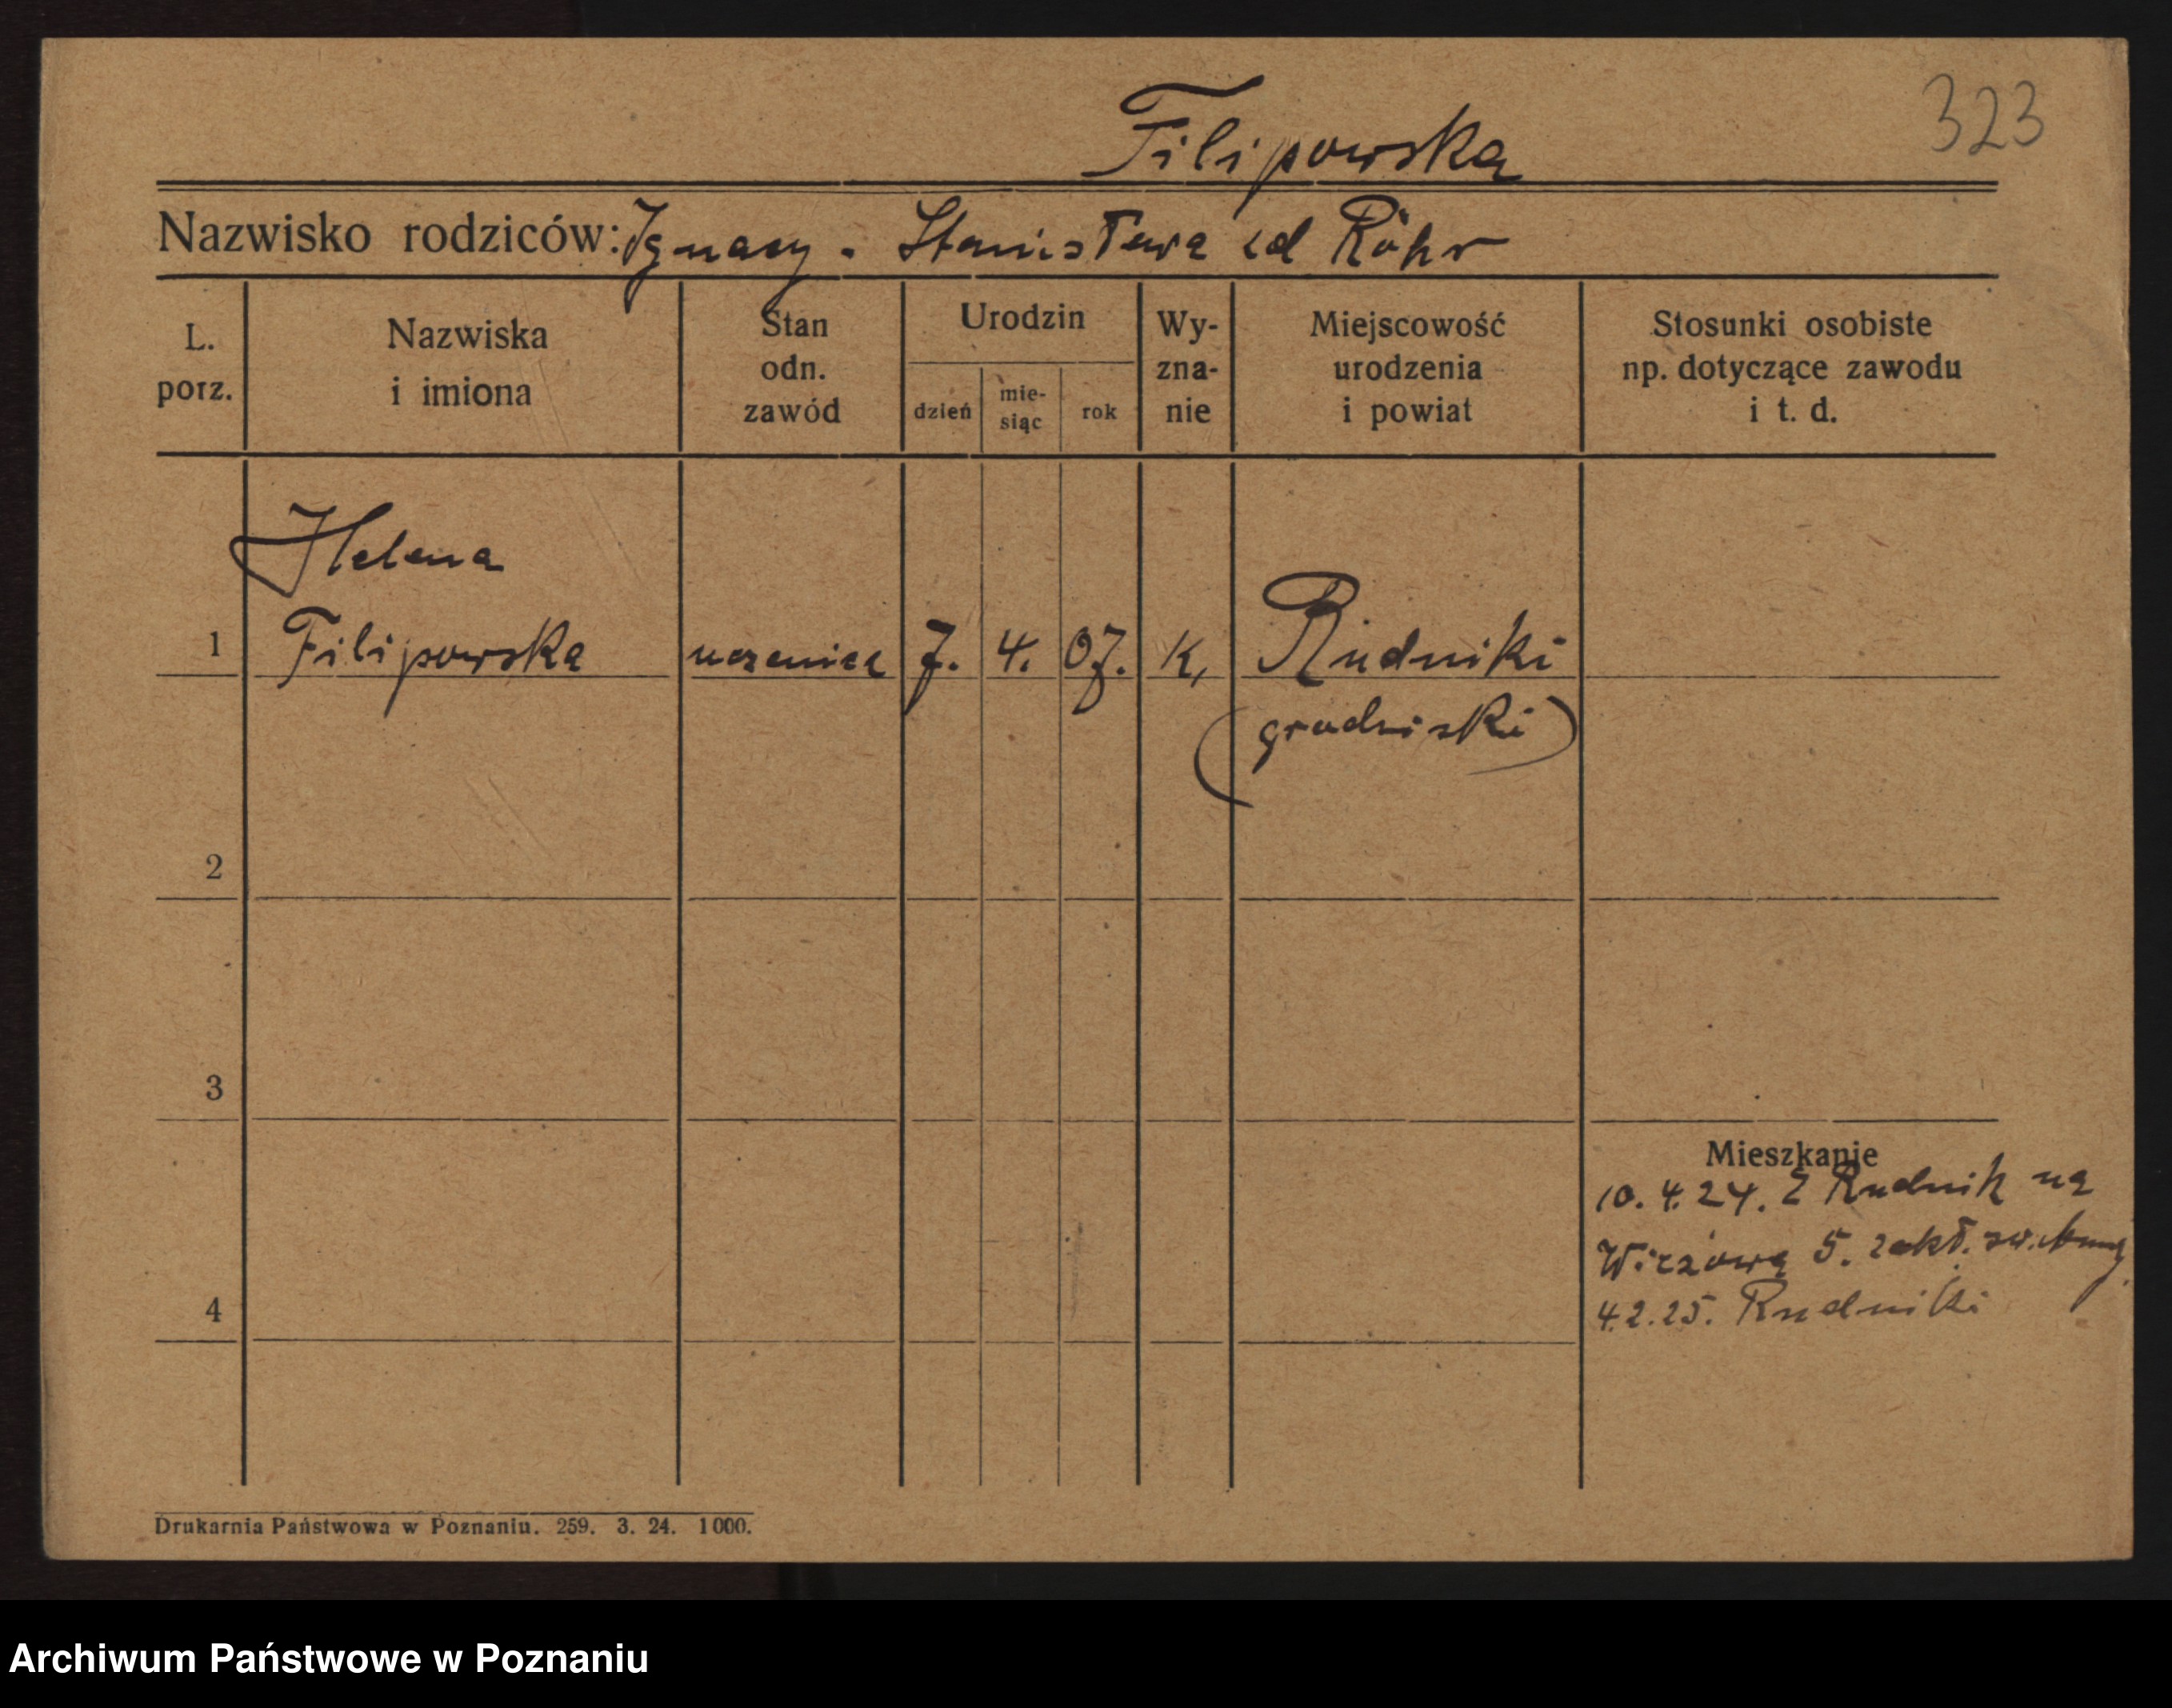 323
Filipowska
Nazwisko rodziców: Ignacy - Stanisława zd Röhr
L. porz.
Nazwiska i imiona
Stan odn. zawód
Urodzin
dzień
mie-
siąc
rok
Wy-
zna-
nie
Miejscowość urodzenia i powiat
Stosunki osobiste np. dotyczące zawodu i t. d.
Helena
1 Filipowska uczenica 7. 4. 07. K, Rudniki
(grodziski)
2
3
Mieszkanie
10. 4. 24. Z Rudnik na
Wieżową 5. zakł.
4.2.25. Rudniki
4
Drukarnia Państwowa w Poznaniu. 259. 3. 24. 1000.
Archiwum Państwowe w Poznaniu